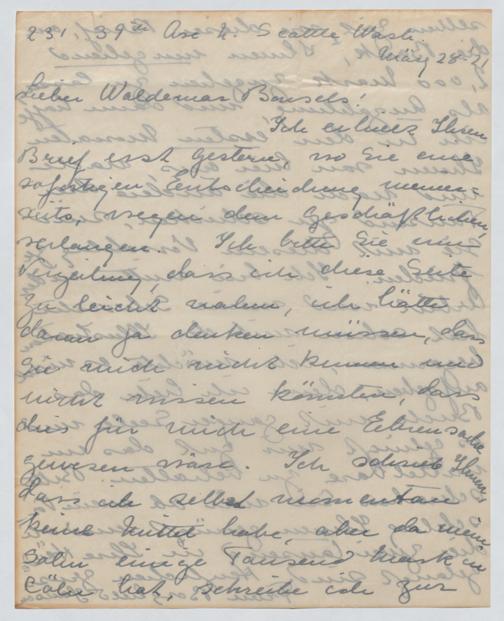 231 39th Ave N Seattle Wash
May 28-21
Lieber Waldemar Bonsels!
Ich erhielt Ihren
Brief erst gestern, wo Sie eine
sofortigen Entscheidung meiner-
seits, wegen dem Geschäftlichen
verlangen. Ich bitte Sie um
Verzeihung, dass ich diese Seite
zu leicht nahm, ich hätte
daran ja denken müssen, dass
Sie mich nicht kennen und
nicht wissen könnten, dass
dies für mich eine Ehrensache
gewesen wäre. Ich schrieb Ihnen,
dass ich selbst momentan
keine Mittel habe, aber da mein
Sohn einige Tausend Mark in
Cöln hat, schreibe ich zur